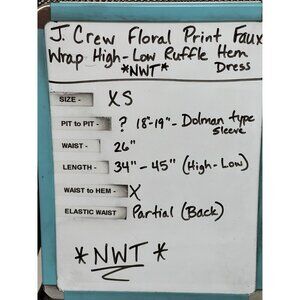 J. Crew Floral Print Faux
Wrap High-Low Ruffle Hem
*NWT* Dress
SIZE - XS
PIT to PIT - ? 18"-19" - Dolman type
sleeve
WAIST - 26"
LENGTH - 34" - 45" (High-Low)
WAIST to HEM - X
ELASTIC WAIST Partial (Back)
*NWT*